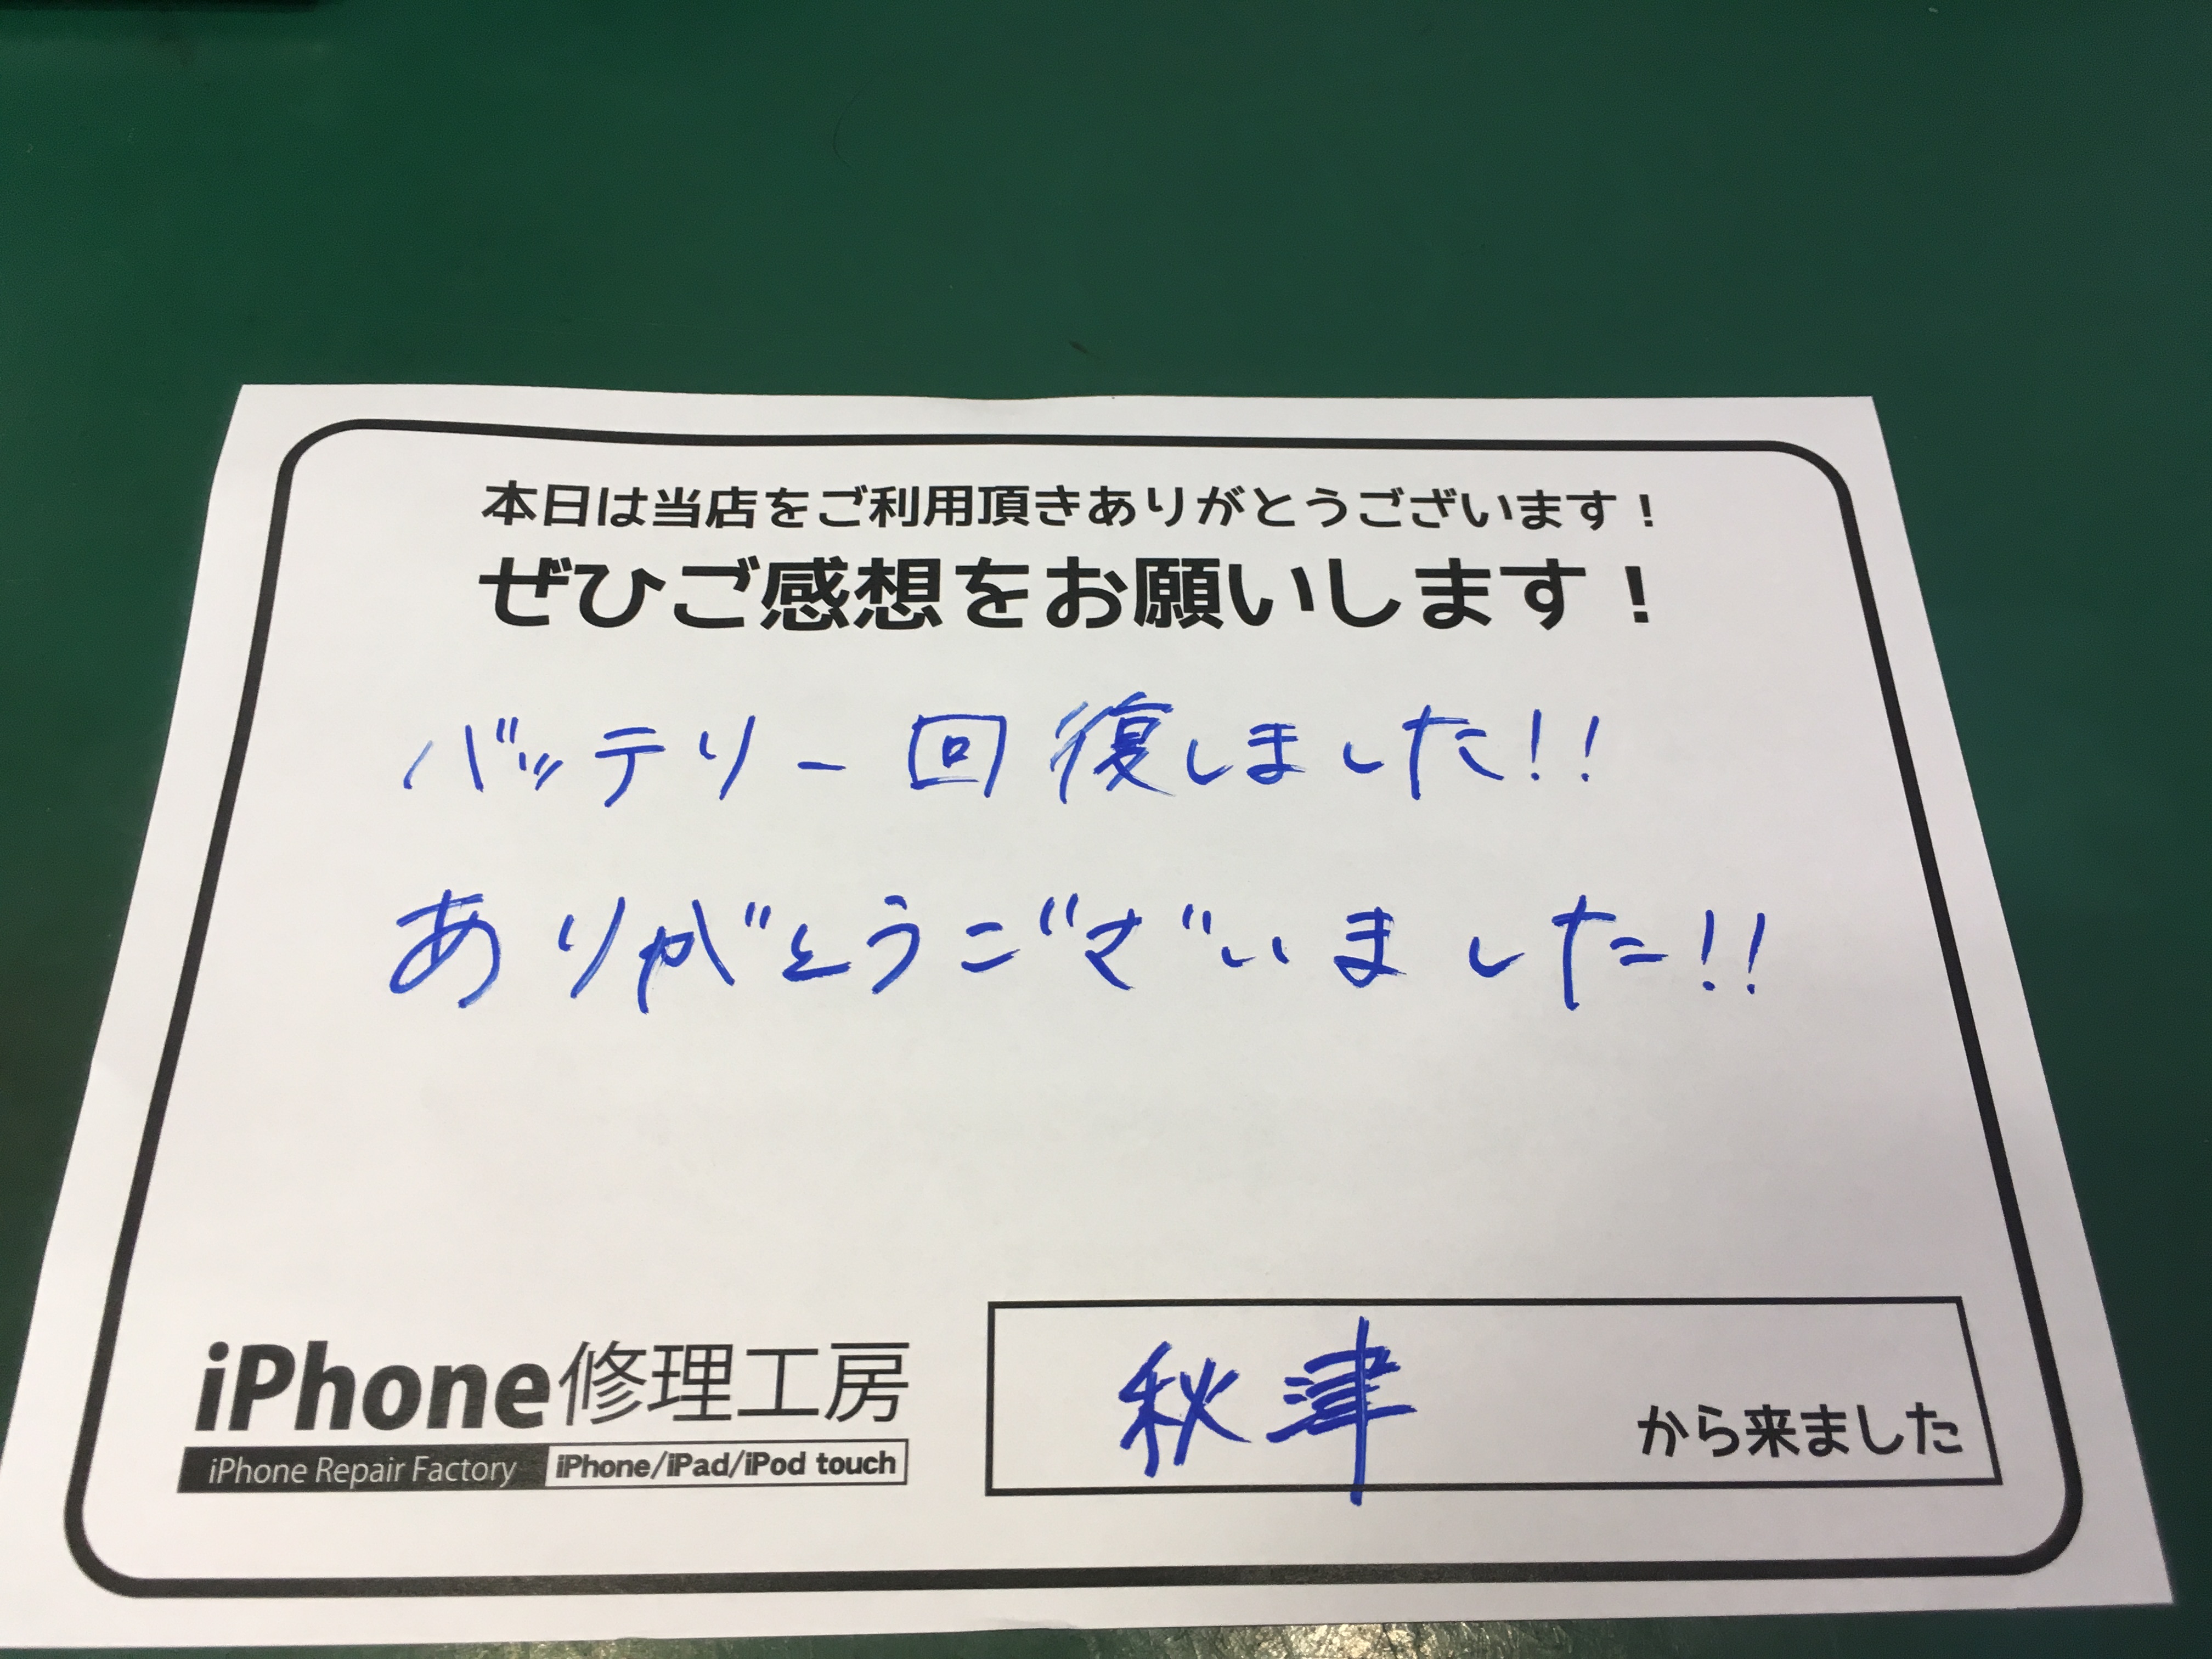 本日は当店をご利用頂きありがとうございます！
ぜひご感想をお願いします！
バッテリー回復しました!!
ありがとうございました!!
iPhone修理工房
iPhone Repair Factory iPhone/iPad/iPod touch
秋津 から来ました